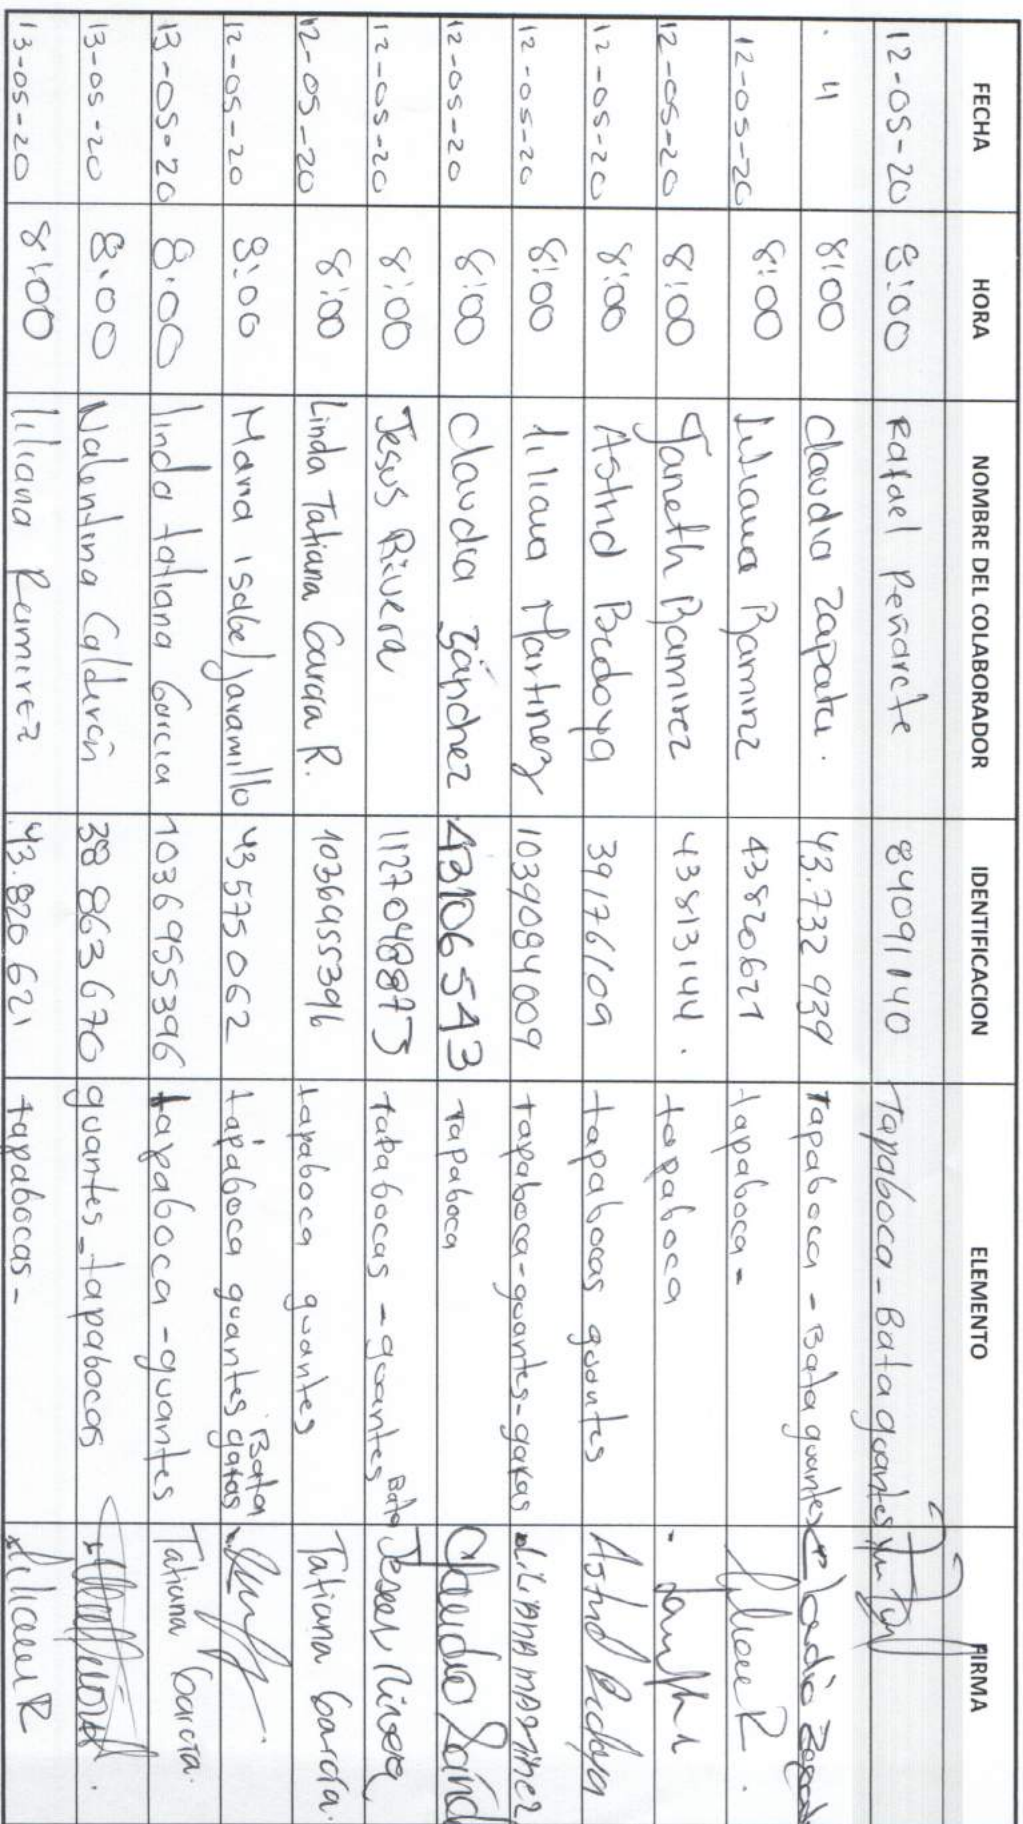 FECHA HORA NOMBRE DEL COLABORADOR IDENTIFICACION ELEMENTO FIRMA
12-05-20 8:00 Rafael Peñarete 84091140 Tapaboca - Bata guantes
" 8:00 Claudia Zapata. 43.732 939 Tapaboca - Bata guantes Claudia Zapata
12-05-20 8:00 Liliana Ramirez 43820621 tapaboca - Liliana R.
12-05-20 8:00 Janeth Ramirez 43813144. tapaboca
12-05-20 8:00 Astrid Bedoya 39176109 tapabocas guantes Astrid Bedoya
12-05-20 8:00 liliana Martinez 1039084009 tapaboca-guantes-gafas LiLiANA MARtiNez
12-05-20 8:00 Claudia Sánchez 43106543 Tapaboca Claudia Sánd
12-05-20 8:00 Jesus Rivera 1127048873 tapabocas - guantes Bata Jesus Rivera
12-05-20 8:00 Linda Tatiana Garcia R. 1036955396 tapaboca guantes Tatiana Garcia.
12-05-20 8:00 Maria isabel Jaramillo 43575062 tapaboca guantes gafas Bata
13-05-20 8:00 linda tatiana Garcia 1036955396 tapaboca - guantes Tatiana Garcia.
13-05-20 8:00 Valentina Calderón 38863670 guantes - tapabocas
13-05-20 8:00 liliana Ramirez 43.820 621 tapabocas - Liliana R